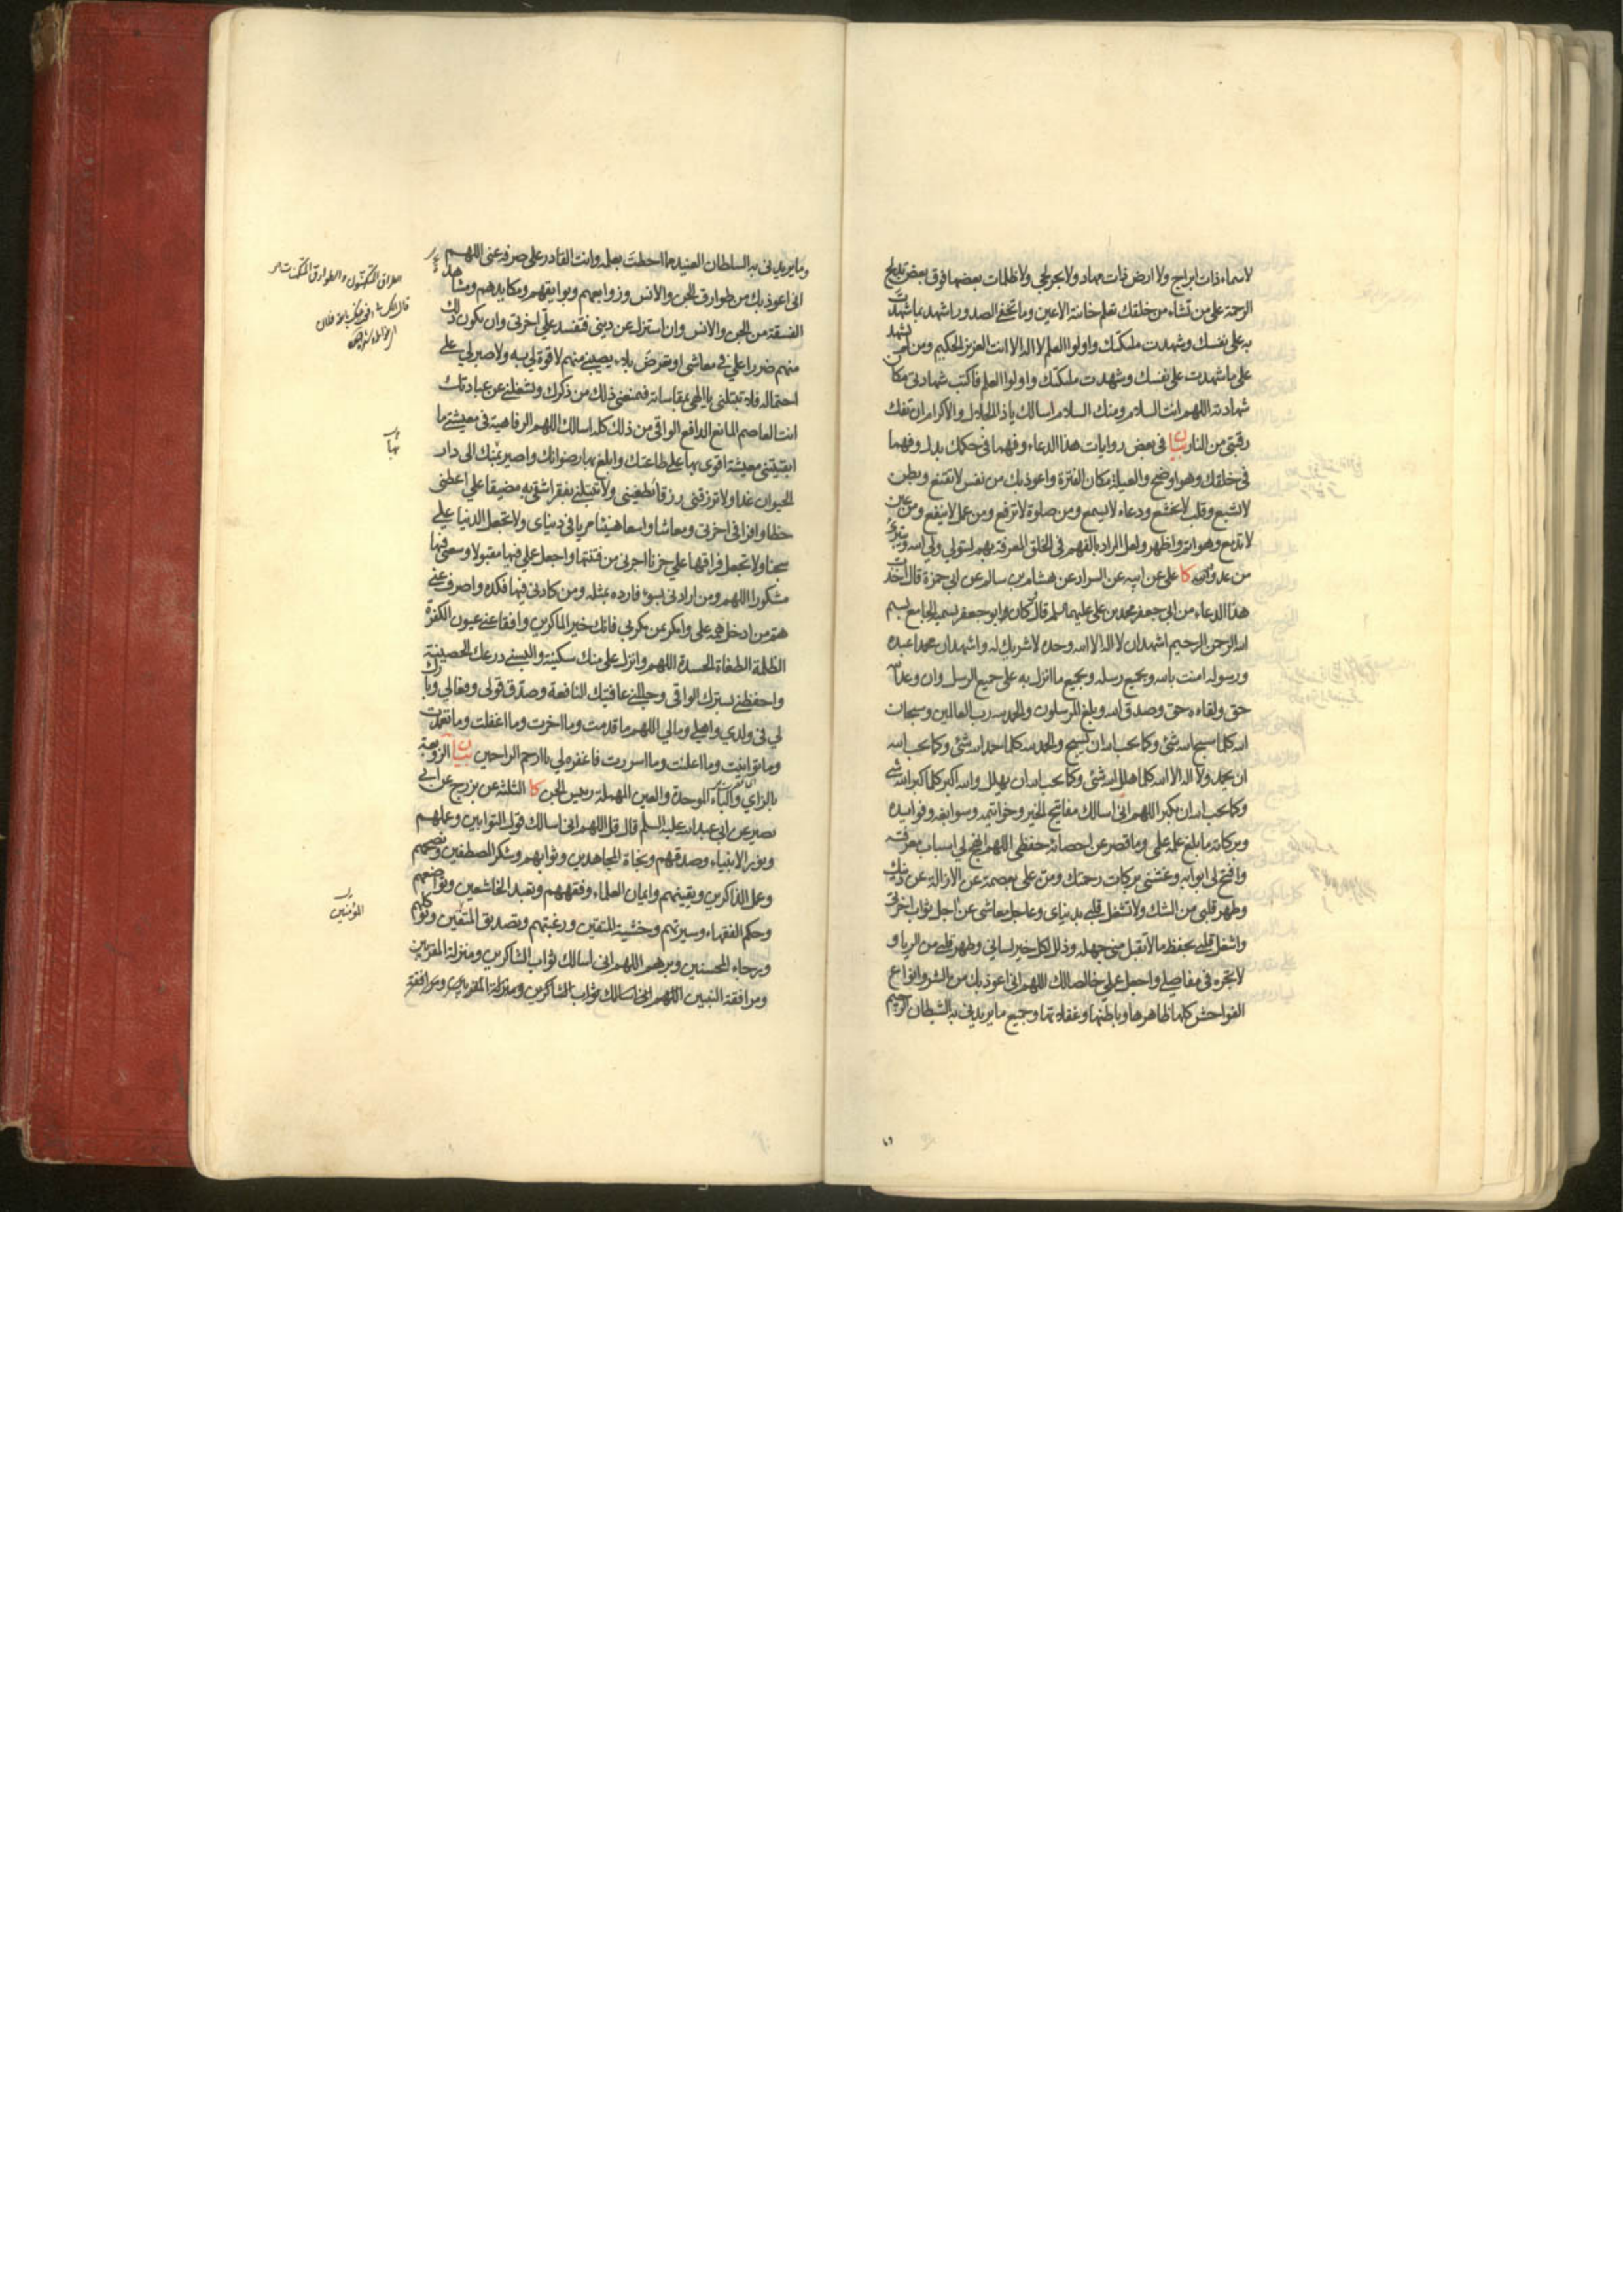 لا سماء ذات ابراج ولا ارض ذات مهاد ولا بحر لجي ولا ظلمات بعضها فوق بعض تدلج
الرحمة على من تشاء من خلقك تعلم خائنة الاعين وما تخفى الصدور اشهد بما شهدت
به على نفسك وشهدت ملئكتك واولوا العلم لا اله الا انت العزيز الحكيم ومن لم يشهد
على ما شهدت على نفسك وشهدت ملئكتك واولوا العلم فاكتب شهادتى مكان
شهادته اللهم انت السلام ومنك السلام اسالك ياذا الجلال والاكرام ان تفك
رقبتى من النار بيان فى بعض روايات هذا الدعاء وفهما فى حكمك بدل وفهما
فى خلقك وهو اوضح والعيلة مكان الفترة واعوذ بك من نفس لا تقنع وبطن
لا تشبع وقلب لا يخشع ودعاء لا يسمع ومن صلوة لا ترفع ومن عمل لا ينفع ومن عين
لا تدمع وهو اتم واظهر ولعل المراد بالفهم فى الخلق المعرفة بهم
من عدو الله كا على عن ابيه عن السراد عن هشام بن سالم عن ابى حمزة قال اخذت
هذا الدعاء من ابى جعفر محمد بن على عليهما السلم قال كان ابو جعفر يسميه الجامع بسم
الله الرحمن الرحيم اشهد ان لا اله الا الله وحده لا شريك له واشهد ان محمدا عبده
ورسوله امنت بالله وبجميع رسله وبجميع ما انزل به على جميع الرسل وان وعد الله
حق ولقاءه حق وصدق الله وبلغ المرسلون والحمد لله رب العالمين وسبحان
الله كلما سبح الله شئ وكما يحب الله ان يسبح والحمد لله كلما حمد الله شئ وكما يحب الله
ان يحمد ولا اله الا الله كلما هلل الله شئ وكما يحب الله ان يهلل والله اكبر كلما كبر الله شئ
وكما يحب الله ان يكبر اللهم انى اسالك مفاتيح الخير وخواتيمه وسوابغه وفوايده
وبركاته ما بلغ علمه علمى وما قصر عن احصائه حفظى اللهم انهج لى اسباب معرفته
وافتح لى ابوابه وغشنى بركات رحمتك ومن على بعصمة عن الازالة عن دينك
وطهر قلبى من الشك ولا تشغل قلبى بدنياى وعاجل معاشى عن اجل ثواب اخرتى
واشغل قلبى بحفظ ما لا تقبل منى جهله وذلل لكل خير لسانى وطهر قلبى من الريا و
لا تجره فى مفاصلى واجعل عملى خالصا لك اللهم انى اعوذ بك من الشر وانواع
الفواحش كلها ظاهرها وباطنها وغفلاتها وجميع ما يريدنى به الشيطان الرجيم
وما يريدنى به السلطان العنيد مما احطت بعلمه وانت القادر على صرفه عنى اللهم
انى اعوذ بك من طوارق الجن والانس وزوابعهم وبوايقهم ومكايدهم ومشاهد
الفسقة من الجن والانس وان استزل عن دينى فتفسد على اخرتى وان يكون ذلك
منهم ضررا على فى معاشى او يعرض بلاء يصيبنى منهم لا قوة لى به ولا صبر لى على
احتماله فلا تبتلنى يا الهى بمقاساته فيمنعنى ذلك من ذكرك ويشغلنى عن عبادتك
انت العاصم المانع الدافع الواقى من ذلك كله اسالك اللهم الرفاهية فى معيشتى ما
ابقيتنى معيشة اقوى بها على طاعتك وابلغ بها رضوانك واصير بمنك الى دار
الحيوان غدا ولا ترزقنى رزقا يطغينى ولا تبتلنى بفقر اشقى به مضيقا على اعطنى
حظا وافرا فى اخرتى ومعاشا واسعا هنيئا مريا فى دنياى ولا تجعل الدنيا على
سجنا ولا تجعل فراقها على حزنا اجرنى من فتنتها واجعل عملى فيها مقبولا وسعيى فيها
مشكورا اللهم ومن ارادنى بسوء فارده بمثله ومن كادنى فيها فكده واصرف عنى
هم من ادخل همه على وامكر بمن مكر بى فانك خير الماكرين وافقا عنى عيون الكفرة
الظلمة الطغاة الحسدة اللهم وانزل على منك سكينة والبسنى درعك الحصينة
واحفظنى بسترك الواقى وجللنى عافيتك النافعة وصدق قولى وفعالى وبارك
لى فى ولدى واهلى ومالى اللهم ما قدمت وما اخرت وما اغفلت وما تعمدت
وما توانيت وما اعلنت وما اسررت فاغفره لى يا ارحم الراحمين بيان الزوبعة
بالزاي والباء الموحدة والعين المهملة رييس الجن كا الثلثة عن بزرج عن ابى
بصير عن ابى عبد الله عليه السلم قال قل اللهم انى اسالك قول التوابين وعملهم
ونور الانبياء وصدقهم ونجاة المجاهدين وثوابهم وشكر المصطفين ونصحهم
وعمل الذاكرين ويقينهم وايمان العلماء وفقههم وتعبد الخاشعين وتواضعهم
وحكم الفقهاء وسيرتهم وخشية المتقين ورغبتهم وتصديق المتقين وتوكلهم
ورجاء المحسنين وبرهم اللهم انى اسالك ثواب الشاكرين ومنزلة المقربين
ومرافقة النبيين اللهم انى اسالك ثواب الشاكرين ومنزلة المقربين ومرافقة
المؤمنين